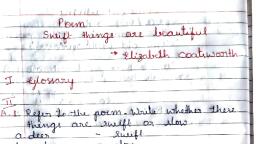 Poem
Swift things are beautiful
→ Elizabeth Coatsworth
I Glossary
II
A.1 Refer to the poem. Write whether these
things are swift or slow
a deer - swift